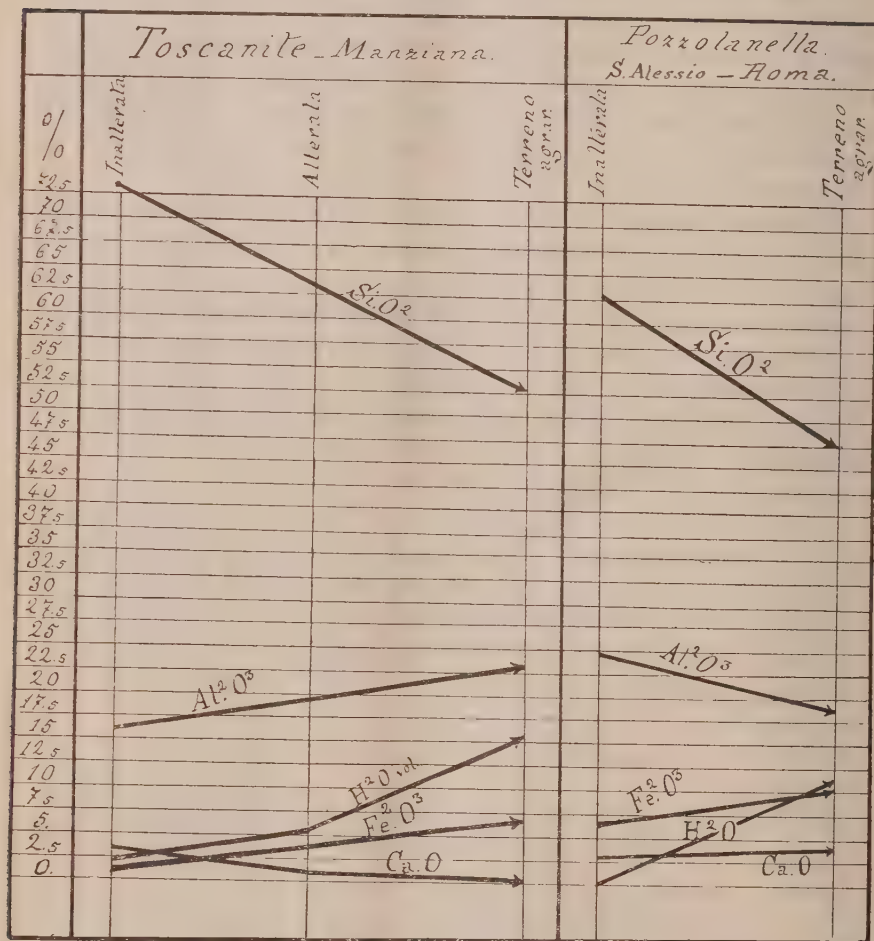 Toscanite - Manziana.
Pozzolanella.
S. Alessio - Roma.
%
Inallerata
Allerata
Terreno
agrar.
Inallerata
Terreno
agrar.
72.5
70
67.5
65
62.5
60
57.5
55
52.5
50
47.5
45
42.5
40
37.5
35
32.5
30
27.5
25
22.5
20
17.5
15
12.5
10
7.5
5.
2.5
0.
Si.O²
Al².O³
H²O vol.
Fe².O³
Ca.O
Si.O²
Al².O³
Fe².O³
H²O
Ca.O